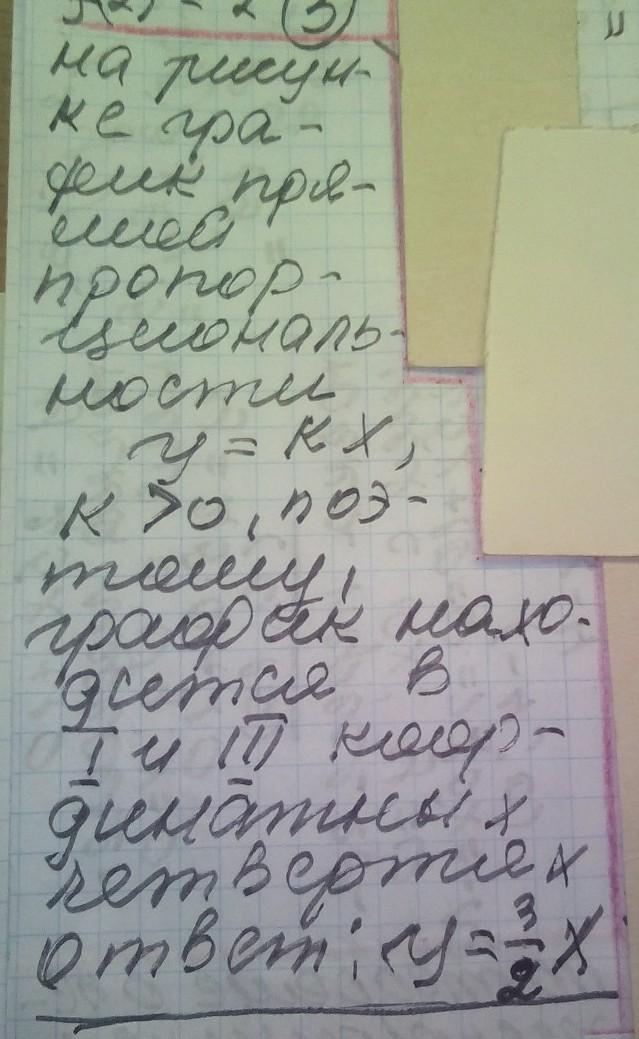 на рисун-
ке гра-
фик пря-
мой
пропор-
циональ-
ности
у = кх,
к > 0, поэ-
тому,
график нахо-
дится в
I и III коор-
динатных
четвертях
ответ: у = 3/2 х